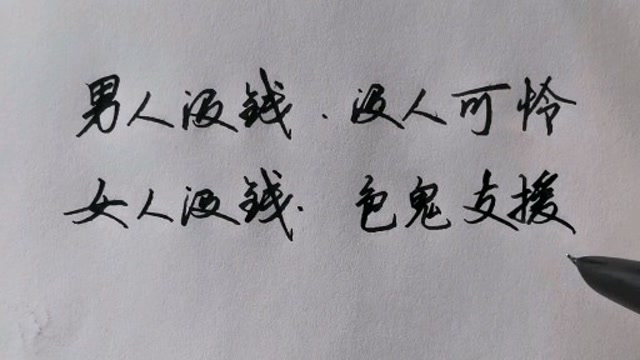 男人没钱.没人可怜
女人没钱.色鬼支援